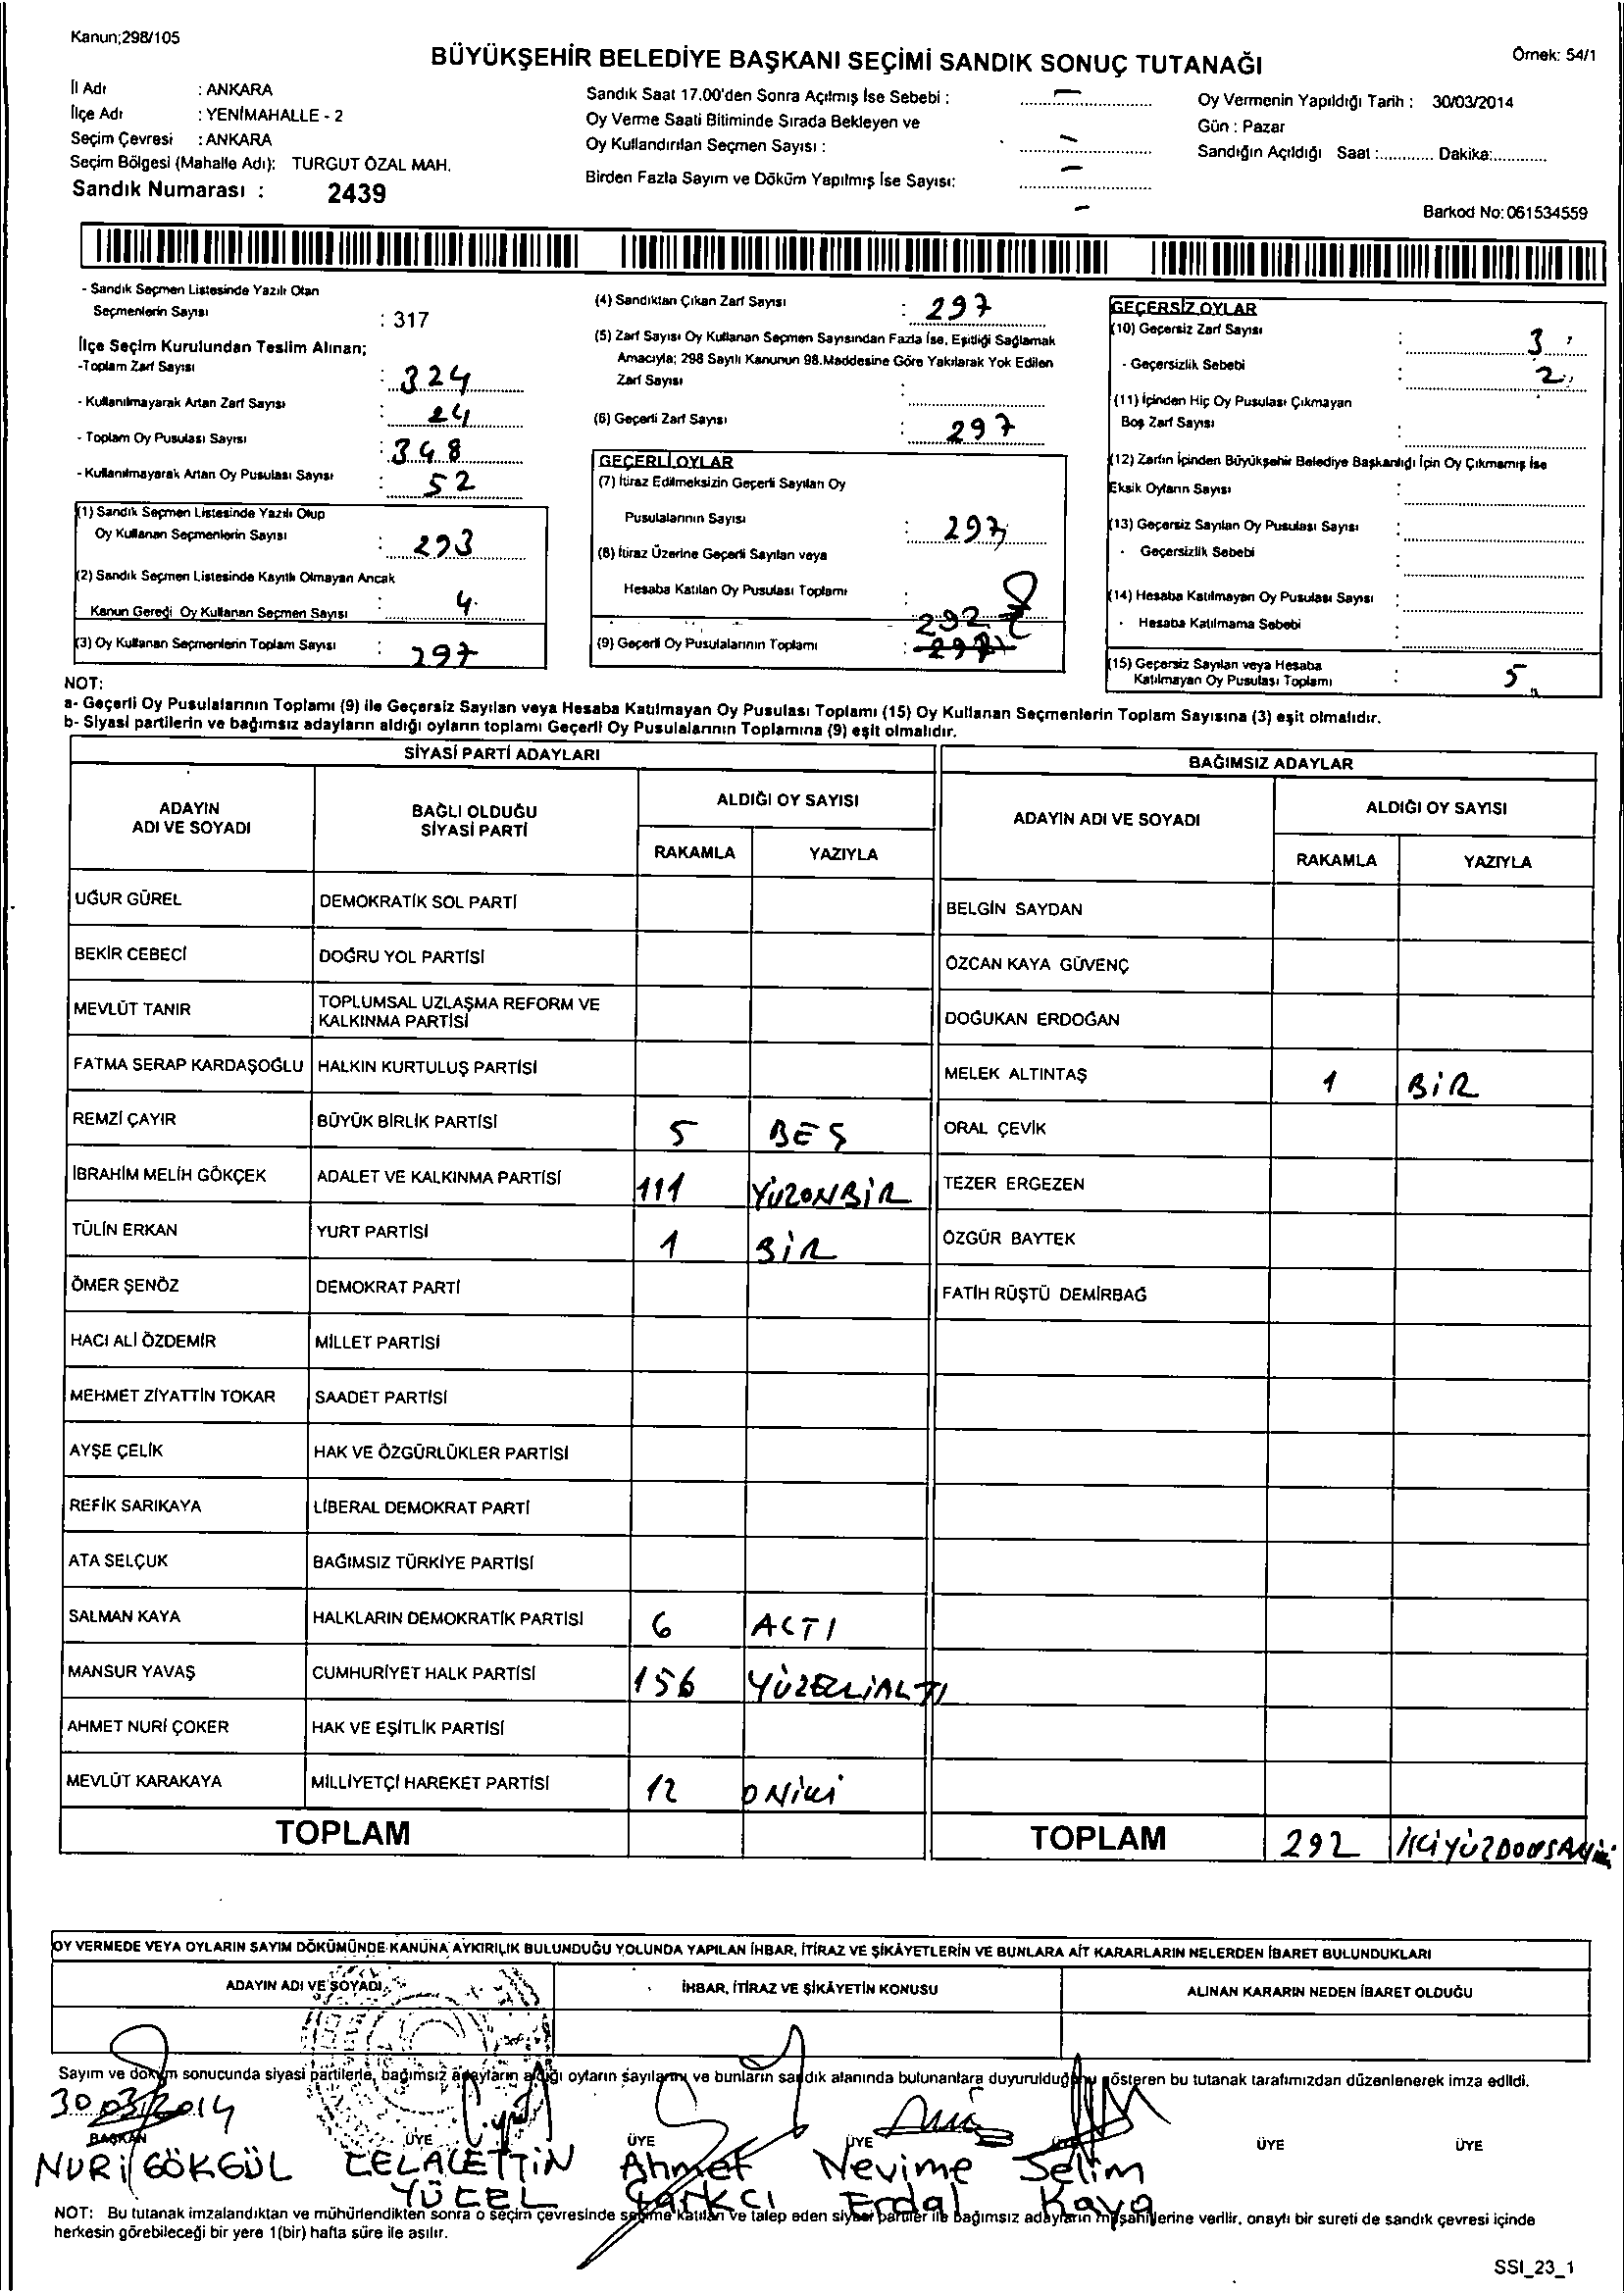 Kanun;298/105
BÜYÜKŞEHİR BELEDİYE BAŞKANI SEÇİMİ SANDIK SONUÇ TUTANAĞI
Örnek: 54/1
İl Adı : ANKARA
İlçe Adı : YENİMAHALLE - 2
Seçim Çevresi : ANKARA
Seçim Bölgesi (Mahalle Adı): TURGUT ÖZAL MAH.
Sandık Numarası : 2439
Sandık Saat 17.00'den Sonra Açılmış İse Sebebi : –
Oy Verme Saati Bitiminde Sırada Bekleyen ve
Oy Kullandırılan Seçmen Sayısı : –
Birden Fazla Sayım ve Döküm Yapılmış İse Sayısı: –
–
Oy Vermenin Yapıldığı Tarih : 30/03/2014
Gün : Pazar
Sandığın Açıldığı Saat :............ Dakika:............
Barkod No: 061534559
- Sandık Seçmen Listesinde Yazılı Olan
Seçmenlerin Sayısı : 317
İlçe Seçim Kurulundan Teslim Alınan;
-Toplam Zarf Sayısı : 324
- Kullanılmayarak Artan Zarf Sayısı : 24
- Toplam Oy Pusulası Sayısı : 348
- Kullanılmayarak Artan Oy Pusulası Sayısı : 52
(1) Sandık Seçmen Listesinde Yazılı Olup
Oy Kullanan Seçmenlerin Sayısı : 293
(2) Sandık Seçmen Listesinde Kayıtlı Olmayan Ancak
Kanun Gereği Oy Kullanan Seçmen Sayısı : 4
(3) Oy Kullanan Seçmenlerin Toplam Sayısı : 297
(4) Sandıktan Çıkan Zarf Sayısı : 297
(5) Zarf Sayısı Oy Kullanan Seçmen Sayısından Fazla İse, Eşitliği Sağlamak
Amacıyla; 298 Sayılı Kanunun 98.Maddesine Göre Yakılarak Yok Edilen
Zarf Sayısı :
(6) Geçerli Zarf Sayısı : 297
GEÇERLİ OYLAR
(7) İtiraz Edilmeksizin Geçerli Sayılan Oy
Pusulalarının Sayısı : 297
(8) İtiraz Üzerine Geçerli Sayılan veya
Hesaba Katılan Oy Pusulası Toplamı :
292
(9) Geçerli Oy Pusulalarının Toplamı : 297
GEÇERSİZ OYLAR
(10) Geçersiz Zarf Sayısı : 3
- Geçersizlik Sebebi : 2
(11) İçinden Hiç Oy Pusulası Çıkmayan
Boş Zarf Sayısı :
(12) Zarfın İçinden Büyükşehir Belediye Başkanlığı İçin Oy Çıkmamış İse
Eksik Oyların Sayısı :
(13) Geçersiz Sayılan Oy Pusulası Sayısı :
- Geçersizlik Sebebi
(14) Hesaba Katılmayan Oy Pusulası Sayısı :
- Hesaba Katılmama Sebebi
(15) Geçersiz Sayılan veya Hesaba
Katılmayan Oy Pusulası Toplamı : 5
NOT:
a- Geçerli Oy Pusulalarının Toplamı (9) ile Geçersiz Sayılan veya Hesaba Katılmayan Oy Pusulası Toplamı (15) Oy Kullanan Seçmenlerin Toplam Sayısına (3) eşit olmalıdır.
b- Siyasi partilerin ve bağımsız adayların aldığı oyların toplamı Geçerli Oy Pusulalarının Toplamına (9) eşit olmalıdır.
SİYASİ PARTİ ADAYLARI
ADAYIN ADI VE SOYADI
BAĞLI OLDUĞU SİYASİ PARTİ
ALDIĞI OY SAYISI
RAKAMLA YAZIYLA
UĞUR GÜREL DEMOKRATİK SOL PARTİ
BEKİR CEBECİ DOĞRU YOL PARTİSİ
MEVLÜT TANIR TOPLUMSAL UZLAŞMA REFORM VE KALKINMA PARTİSİ
FATMA SERAP KARDAŞOĞLU HALKIN KURTULUŞ PARTİSİ
REMZİ ÇAYIR BÜYÜK BİRLİK PARTİSİ 5 BEŞ
İBRAHİM MELİH GÖKÇEK ADALET VE KALKINMA PARTİSİ 111 YÜZONBİR
TÜLİN ERKAN YURT PARTİSİ 1 BİR
ÖMER ŞENÖZ DEMOKRAT PARTİ
HACI ALİ ÖZDEMİR MİLLET PARTİSİ
MEHMET ZİYATTİN TOKAR SAADET PARTİSİ
AYŞE ÇELİK HAK VE ÖZGÜRLÜKLER PARTİSİ
REFİK SARIKAYA LİBERAL DEMOKRAT PARTİ
ATA SELÇUK BAĞIMSIZ TÜRKİYE PARTİSİ
SALMAN KAYA HALKLARIN DEMOKRATİK PARTİSİ 6 ALTI
MANSUR YAVAŞ CUMHURİYET HALK PARTİSİ 156 YÜZELLİALTI
AHMET NURİ ÇOKER HAK VE EŞİTLİK PARTİSİ
MEVLÜT KARAKAYA MİLLİYETÇİ HAREKET PARTİSİ 12 ONİKİ
TOPLAM
BAĞIMSIZ ADAYLAR
ADAYIN ADI VE SOYADI
ALDIĞI OY SAYISI
RAKAMLA YAZIYLA
BELGİN SAYDAN
ÖZCAN KAYA GÜVENÇ
DOĞUKAN ERDOĞAN
MELEK ALTINTAŞ 1 BİR
ORAL ÇEVİK
TEZER ERGEZEN
ÖZGÜR BAYTEK
FATİH RÜŞTÜ DEMİRBAĞ
TOPLAM 292
OY VERMEDE VEYA OYLARIN SAYIM DÖKÜMÜNDE KANUNA AYKIRILIK BULUNDUĞU YOLUNDA YAPILAN İHBAR, İTİRAZ VE ŞİKÂYETLERİN VE BUNLARA AİT KARARLARIN NELERDEN İBARET BULUNDUKLARI
ADAYIN ADI VE SOYADI
İHBAR, İTİRAZ VE ŞİKÂYETİN KONUSU
ALINAN KARARIN NEDEN İBARET OLDUĞU
Sayım ve döküm sonucunda siyasi partilerle, bağımsız adayların aldığı oyların sayılarını ve bunların sandık alanında bulunanlara duyurulduğunu gösteren bu tutanak tarafımızdan düzenlenerek imza edildi.
30.03/2014
BAŞKAN ÜYE ÜYE ÜYE ÜYE ÜYE ÜYE
NURİ GÖKGÜL CELALETTİN YÜCEL Ahmet Şarkcı Nevime Erdal Selim Kaya
NOT: Bu tutanak imzalandıktan ve mühürlendikten sonra o seçim çevresinde seçime katılan ve talep eden siyasi partiler ile bağımsız adayların müşahitlerine verilir, onaylı bir sureti de sandık çevresi içinde
herkesin görebileceği bir yere 1(bir) hafta süre ile asılır.
SSI_23_1